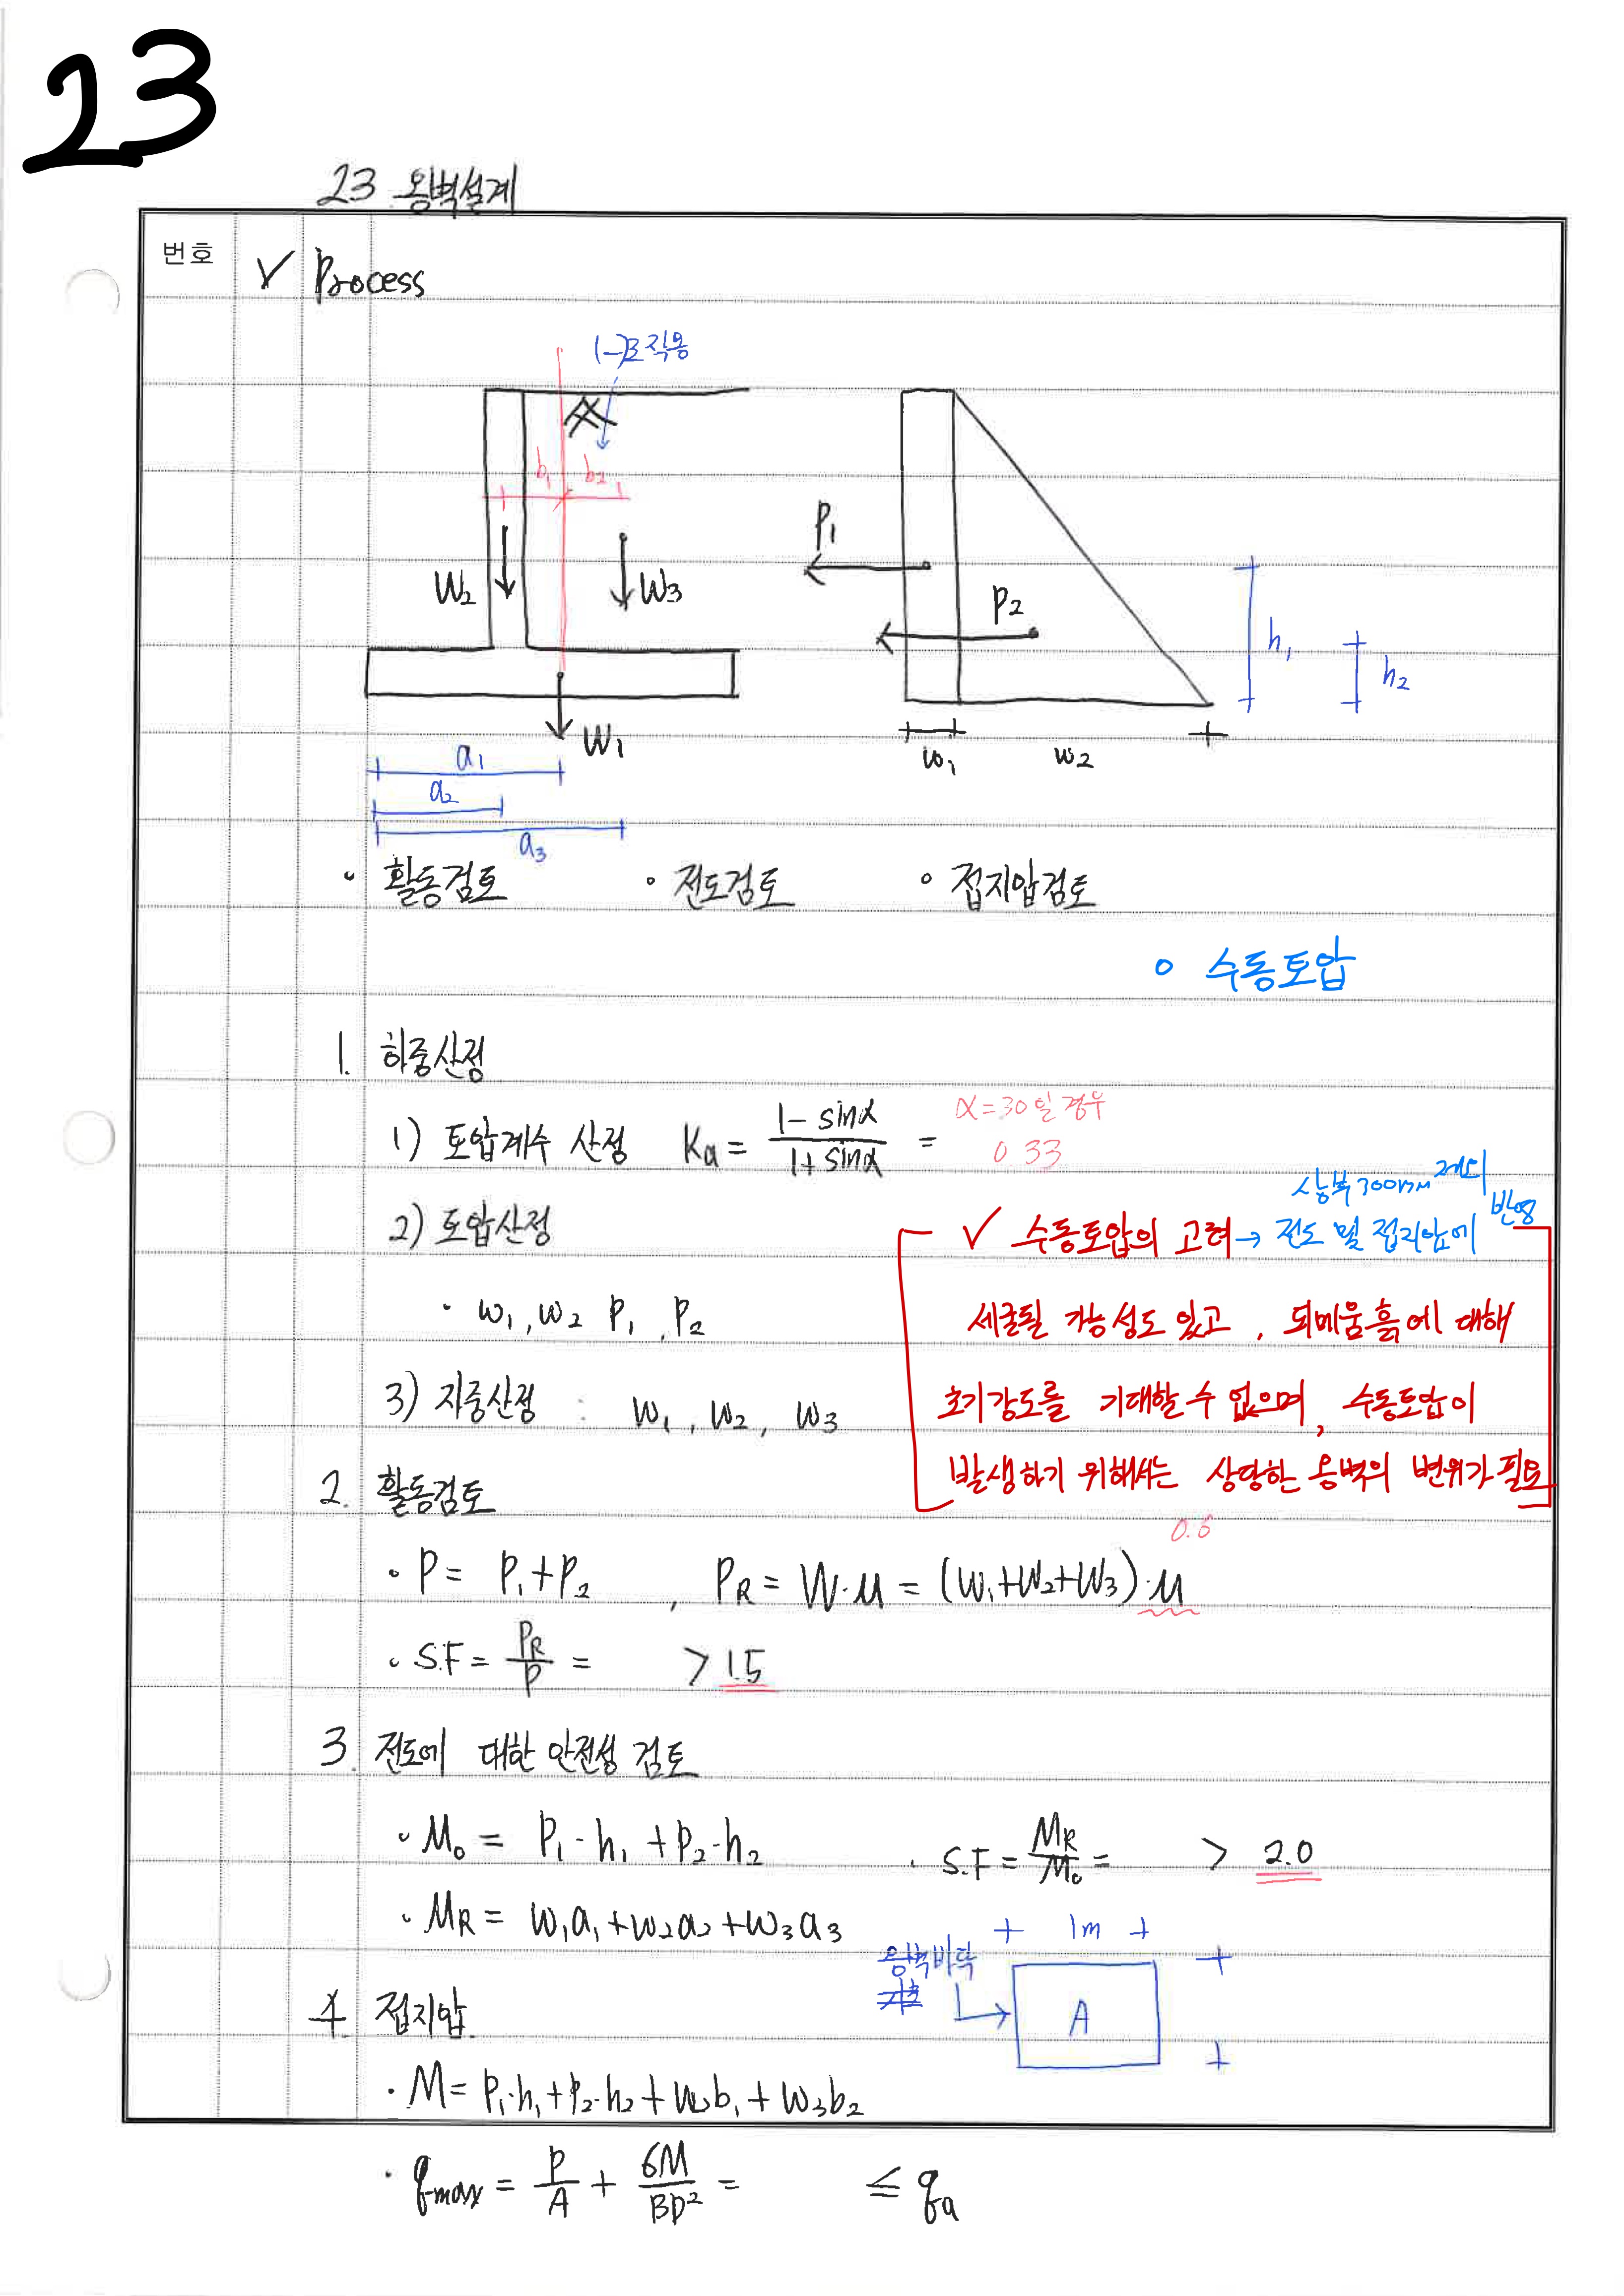 23
23 옹벽설계
번호
✓ Process
(-)로 작용
b₁ b₂
W₂ W₃
P₁
P₂
h₁
h₂
W₁
ω₁ ω₂
a₁
a₂
a₃
• 활동검토 • 전도검토 • 접지압검토
• 수동토압
1. 하중산정
1) 토압계수 산정 Ka = (1 - sinα)/(1 + sinα) =
α=30일 경우
0.33
2) 토압산정
• ω₁, ω₂ P₁, P₂
상부 300mm 제외
✓ 수동토압의 고려 → 전도 및 접지압에 반영
세굴될 가능성도 있고, 되메움흙에 대해
초기강도를 기대할 수 없으며, 수동토압이
발생하기 위해서는 상당한 옹벽의 변위가 필요
3) 자중산정 : W₁, W₂, W₃
2. 활동검토
0.6
• P = P₁+P₂ , PR = W·μ = (W₁+W₂+W₃)·μ
• S.F = PR/P = > 1.5
3. 전도에 대한 안전성 검토
• Mo = P₁·h₁ + P₂·h₂
• S.F = MR/Mo = > 2.0
• MR = W₁a₁ + W₂a₂ + W₃a₃
1m
옹벽바닥
A
4. 접지압
• M = P₁·h₁ + P₂·h₂ + W₂b₁ + W₃b₂
• qmax = P/A + 6M/BD² = ≤ qa